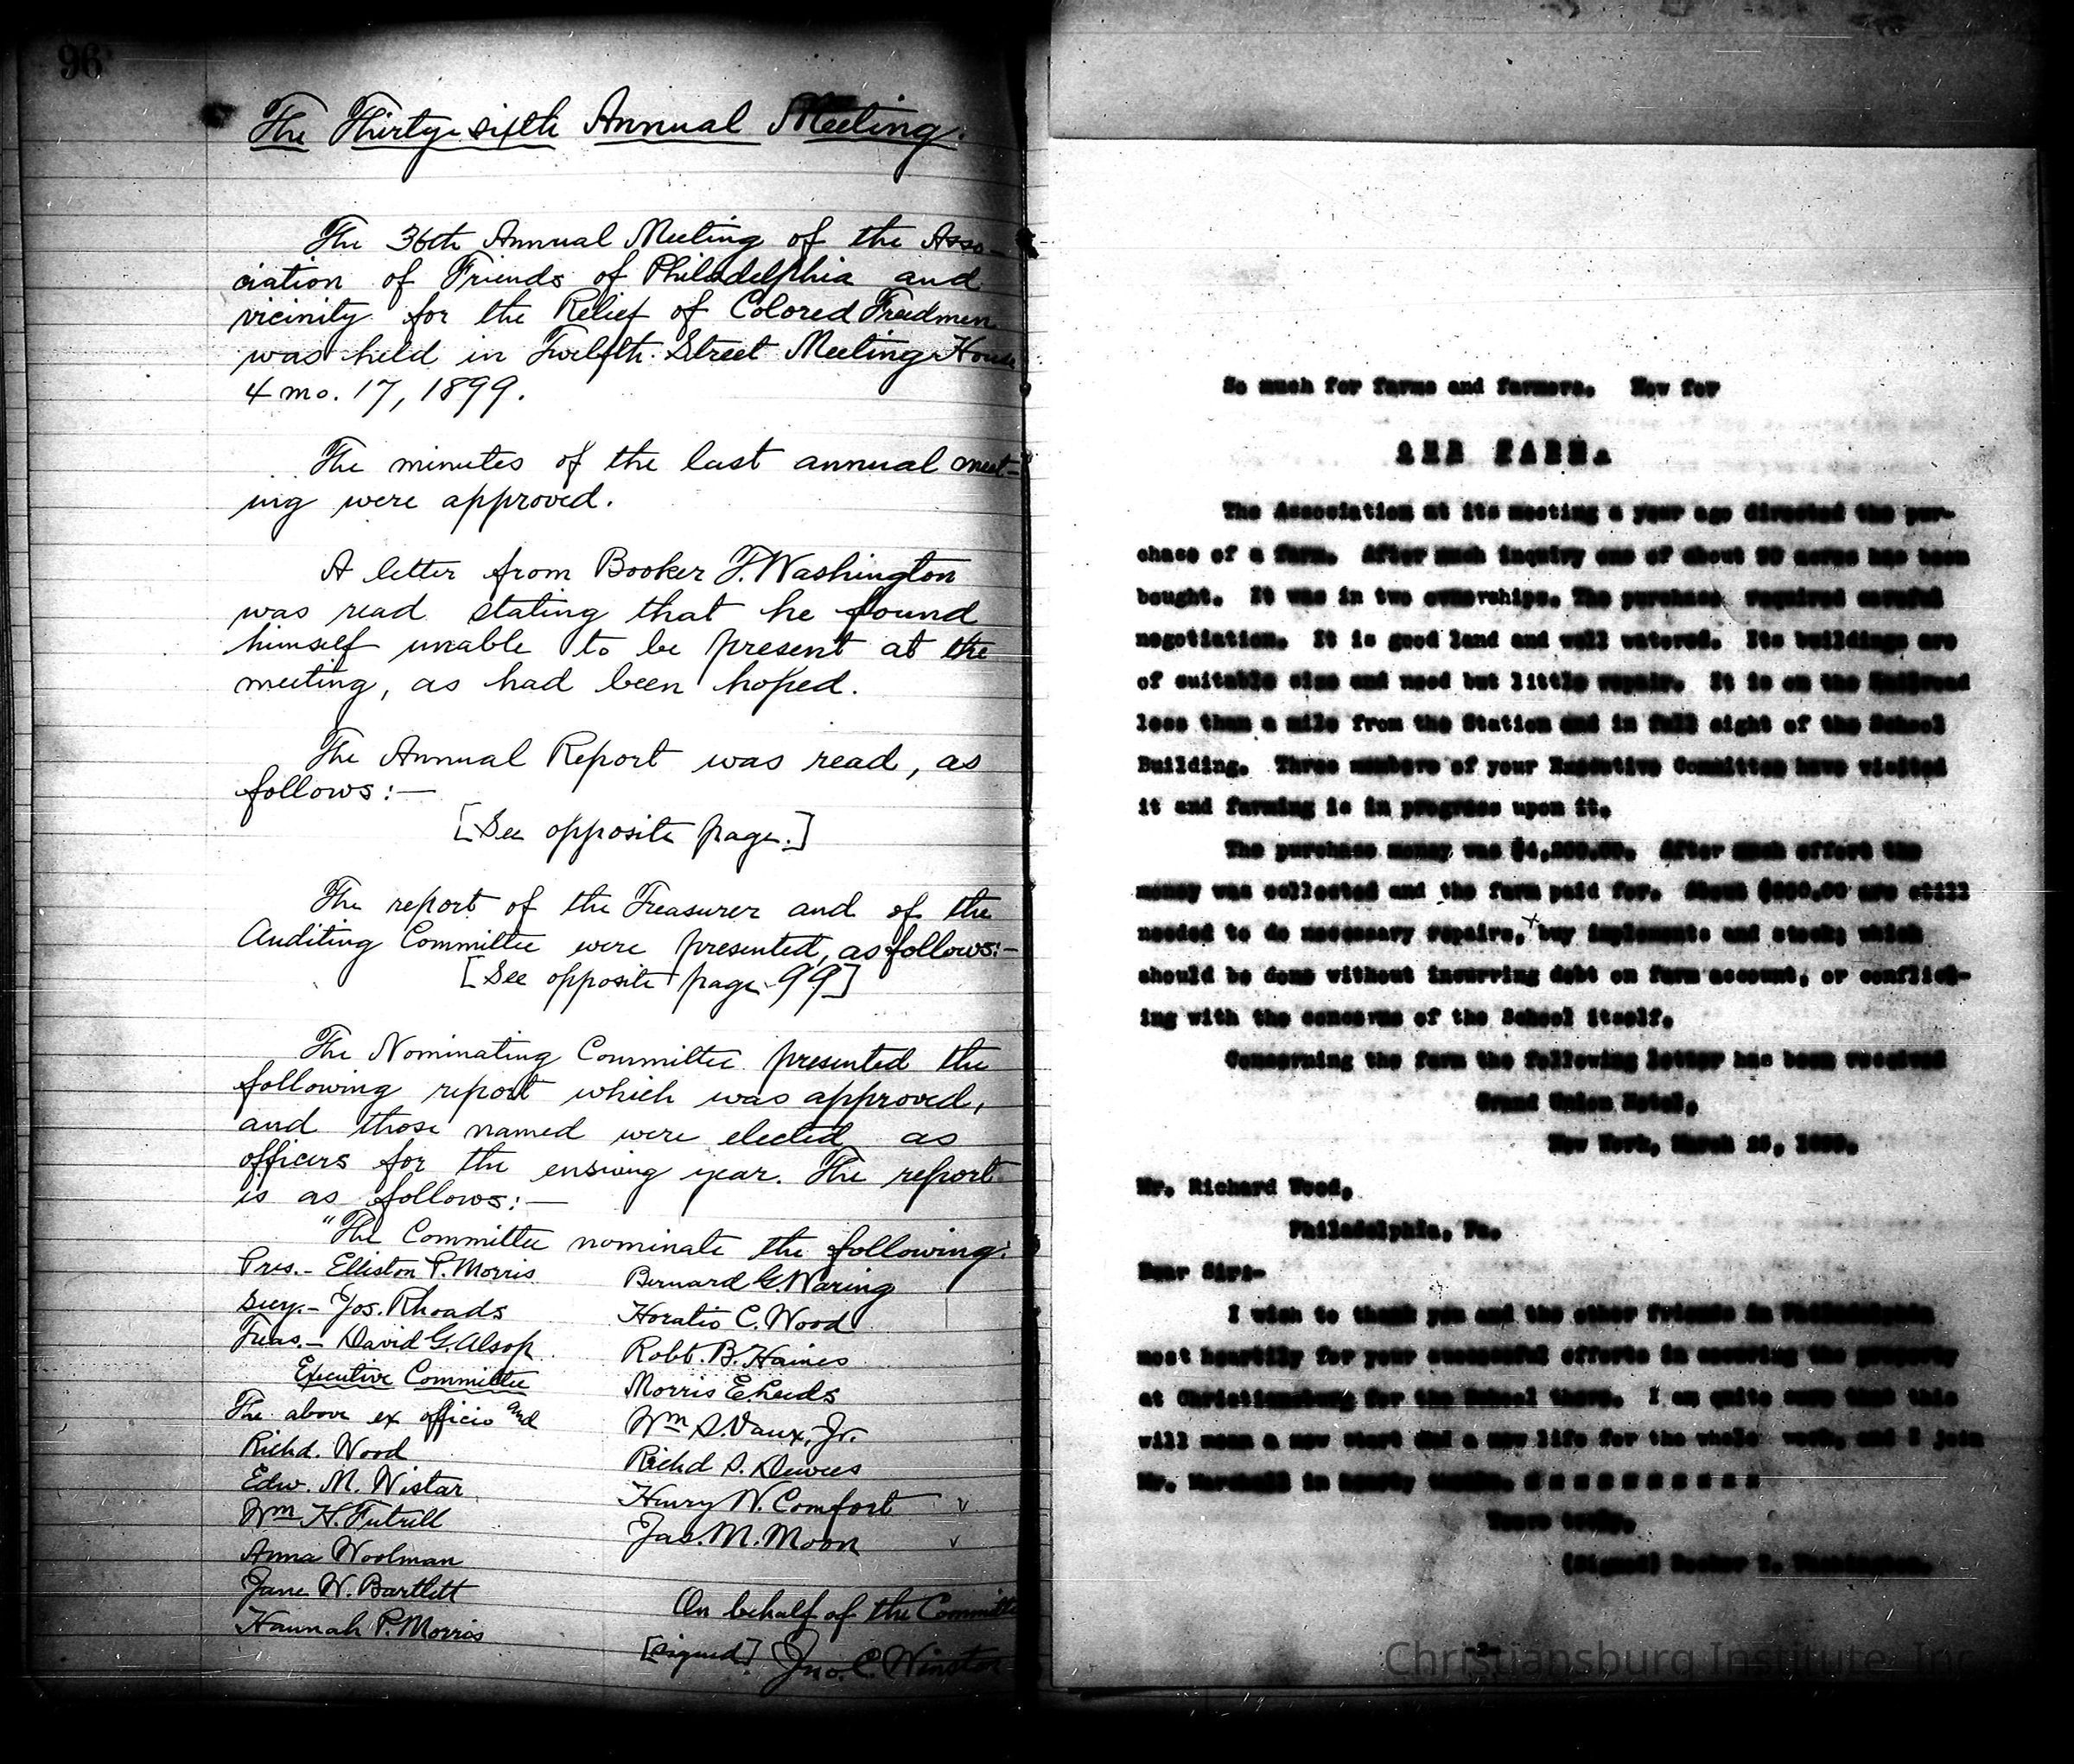 96
The Thirty-sixth Annual Meeting.
The 36th Annual Meeting of the Asso-
ciation of Friends of Philadelphia and
vicinity for the Relief of Colored Freedmen
was held in Twelfth Street Meeting House
4 mo. 17, 1899.
The minutes of the last annual meet-
ing were approved.
A letter from Booker T. Washington
was read stating that he found
himself unable to be present at the
meeting, as had been hoped.
The Annual Report was read, as
follows:—
[See opposite page.]
The report of the Treasurer and of the
Auditing Committee were presented, as follows:—
[See opposite page 99]
The Nominating Committee presented the
following report which was approved,
and those named were elected as
officers for the ensuing year. The report
is as follows:—
"The Committee nominate the following:
Pres.- Elliston P. Morris
Secy.- Jos. Rhoads
Treas.- David G. Alsop
Executive Committee
The above ex officio and
Richd. Wood
Edw. M. Wistar
Wm H. Futrell
Anna Woolman
Jane W. Bartlett
Hannah P. Morris
Bernard G. Waring
Horatio C. Wood
Robt. B. Haines
Morris E. Leeds
Wm S. Vaux, Jr.
Richd S. Dewees
Henry W. Comfort
Jas. M. Moon
On behalf of the Committee
[signed] Jno. C. Winston
So much for farms and farmers. Now for
OUR FARM.
The Association at its meeting a year ago directed the pur-
chase of a farm. After much inquiry one of about acres has been
bought. It was in two ownerships. The purchase required careful
negotiation. It is good land and well watered. Its buildings are
of suitable size and need but little repair. It is on the Railroad
less than a mile from the Station and in full sight of the School
Building. Three members of your Executive Committee have visited
it and farming is in progress upon it.
The purchase money was After much effort the
money was collected and the farm paid for. About are still
needed to do necessary repairs, buy implements and stock; which
should be done without incurring debt on farm account, or conflict-
ing with the concerns of the School itself.
Concerning the farm the following letter has been received
Grand Union Hotel,
New York, March
Mr. Richard Wood,
Philadelphia, Pa.
Dear Sir:-
I wish to thank you and the other friends in Philadelphia
most heartily for your successful efforts in securing the property
at Christiansburg for the School there. I am quite sure that this
will mean a new start and a new life for the whole work, and I join
Mr. Marshall in hearty thanks.
Yours truly,
(Signed) Booker T. Washington.
-2-
Christiansburg Institute, Inc